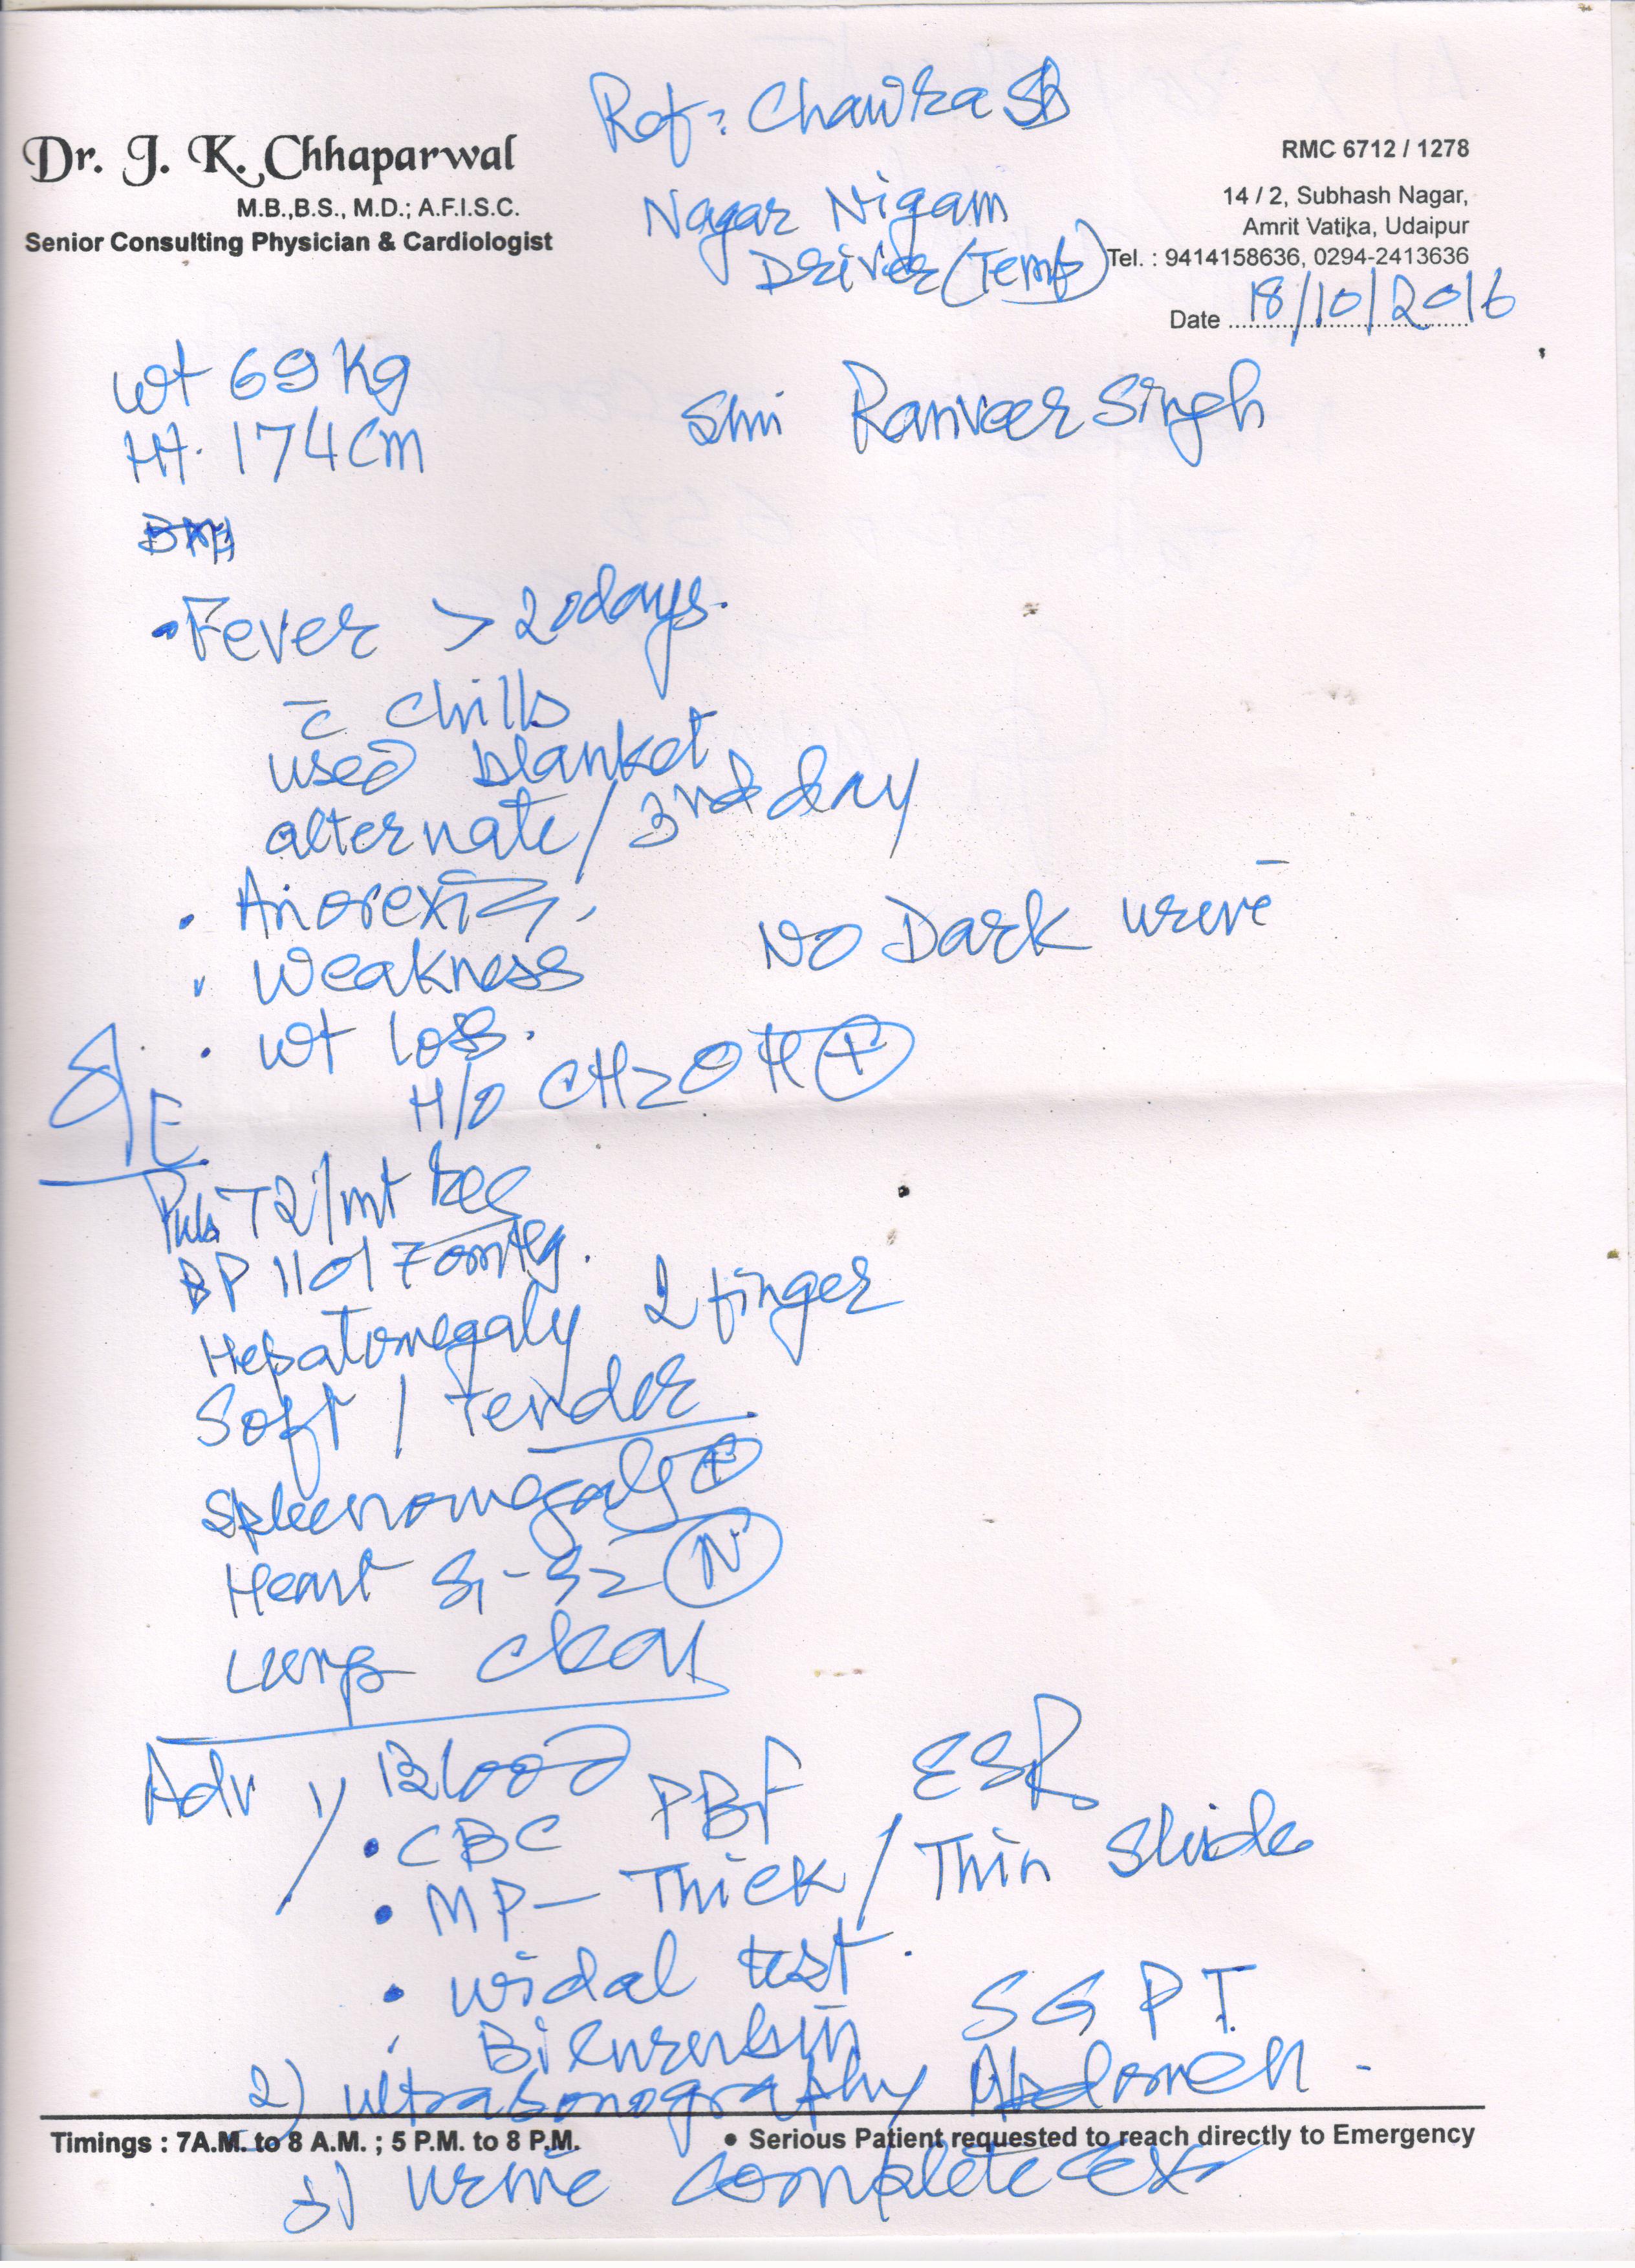 Ref: Chawra SB
Dr. J. K. Chhaparwal
M.B.,B.S., M.D.; A.F.I.S.C.
Senior Consulting Physician & Cardiologist
Nagar Nigam
Driver (Temp)
RMC 6712 / 1278
14 / 2, Subhash Nagar,
Amrit Vatika, Udaipur
Tel. : 9414158636, 0294-2413636
Date 18/10/2016
Wt 69 Kg
Ht. 174 Cm
Shri Ranveer Singh
• Fever > 20 days.
c̄ chills
used blanket
alternate / 3rd day
• Anorexia,
No Dark urine
• Weakness
• Wt loss.
H/o CH2OH (+)
O/E
Puls 72/mt
BP 110/70 mmHg.
Hepatomegaly 2 finger
Soft / Tender
Spleenomegaly (+)
Heart S1-S2 (N)
Lungs clear
Adv 1) Blood
• CBC PBF ESR
• MP - Thick / Thin Slide
• Widal test.
• Bilurubin SGPT
2) Ultrasonography Abdomen -
Timings : 7A.M. to 8 A.M. ; 5 P.M. to 8 P.M.
• Serious Patient requested to reach directly to Emergency
3) Urine complete Ex